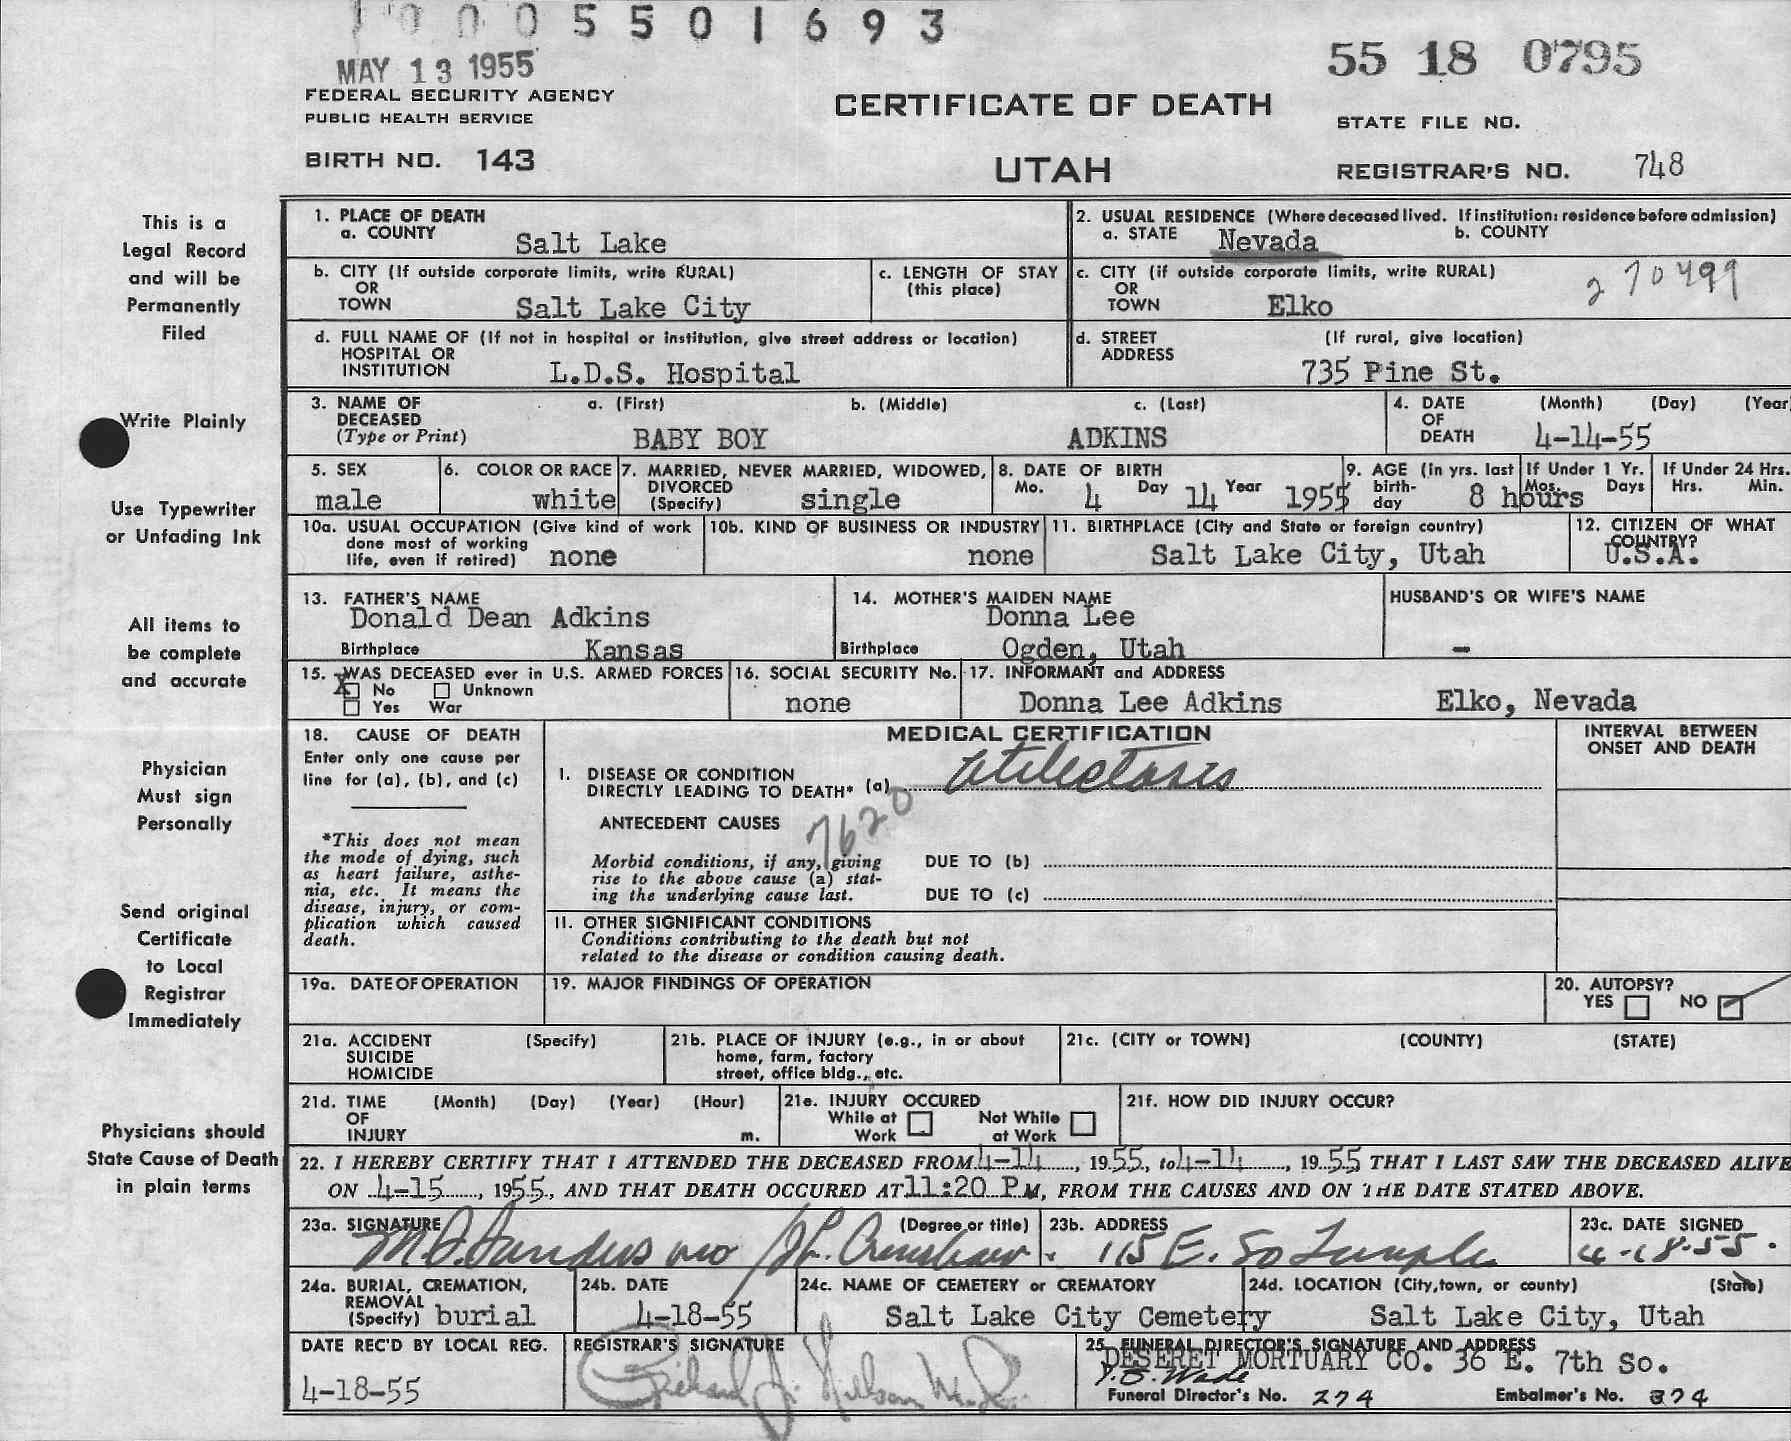 10005501693
MAY 13 1955
55 18 0795
FEDERAL SECURITY AGENCY
PUBLIC HEALTH SERVICE
CERTIFICATE OF DEATH
STATE FILE NO.
BIRTH NO. 143
UTAH
REGISTRAR'S NO. 748
This is a
Legal Record
and will be
Permanently
Filed
Write Plainly
Use Typewriter
or Unfading Ink
All items to
be complete
and accurate
Physician
Must sign
Personally
Send original
Certificate
to Local
Registrar
Immediately
Physicians should
State Cause of Death
in plain terms
1. PLACE OF DEATH
a. COUNTY Salt Lake
2. USUAL RESIDENCE (Where deceased lived. If institution: residence before admission)
a. STATE Nevada b. COUNTY
b. CITY (If outside corporate limits, write RURAL)
OR
TOWN Salt Lake City
c. LENGTH OF STAY
(this place)
c. CITY (if outside corporate limits, write RURAL)
OR
TOWN Elko
270499
d. FULL NAME OF (If not in hospital or institution, give street address or location)
HOSPITAL OR
INSTITUTION L.D.S. Hospital
d. STREET (If rural, give location)
ADDRESS
735 Pine St.
3. NAME OF a. (First) b. (Middle) c. (Last)
DECEASED
(Type or Print) BABY BOY ADKINS
4. DATE (Month) (Day) (Year
OF
DEATH 4-14-55
5. SEX
male
6. COLOR OR RACE
white
7. MARRIED, NEVER MARRIED, WIDOWED,
DIVORCED
(Specify) single
8. DATE OF BIRTH
Mo. 4 Day 14 Year 1955
9. AGE (in yrs. last
birth-
day 8 hours
If Under 1 Yr.
Mos. Days
If Under 24 Hrs.
Hrs. Min.
10a. USUAL OCCUPATION (Give kind of work
done most of working
life, even if retired) none
10b. KIND OF BUSINESS OR INDUSTRY
none
11. BIRTHPLACE (City and State or foreign country)
Salt Lake City, Utah
12. CITIZEN OF WHAT
COUNTRY?
U.S.A.
13. FATHER'S NAME
Donald Dean Adkins
Birthplace Kansas
14. MOTHER'S MAIDEN NAME
Donna Lee
Birthplace Ogden, Utah
HUSBAND'S OR WIFE'S NAME
-
15. WAS DECEASED ever in U.S. ARMED FORCES
X No Unknown
Yes War
16. SOCIAL SECURITY No.
none
17. INFORMANT and ADDRESS
Donna Lee Adkins Elko, Nevada
18. CAUSE OF DEATH
Enter only one cause per
line for (a), (b), and (c)
*This does not mean
the mode of dying, such
as heart failure, asthe-
nia, etc. It means the
disease, injury, or com-
plication which caused
death.
MEDICAL CERTIFICATION
INTERVAL BETWEEN
ONSET AND DEATH
I. DISEASE OR CONDITION
DIRECTLY LEADING TO DEATH* (a) Atilectasis
ANTECEDENT CAUSES 7620
Morbid conditions, if any, giving
rise to the above cause (a) stat-
ing the underlying cause last.
DUE TO (b)
DUE TO (c)
II. OTHER SIGNIFICANT CONDITIONS
Conditions contributing to the death but not
related to the disease or condition causing death.
19a. DATE OF OPERATION
19. MAJOR FINDINGS OF OPERATION
20. AUTOPSY?
YES NO
21a. ACCIDENT (Specify)
SUICIDE
HOMICIDE
21b. PLACE OF INJURY (e.g., in or about
home, farm, factory
street, office bldg., etc.
21c. (CITY or TOWN) (COUNTY) (STATE)
21d. TIME (Month) (Day) (Year) (Hour)
OF
INJURY m.
21e. INJURY OCCURED
While at Not While
Work at Work
21f. HOW DID INJURY OCCUR?
22. I HEREBY CERTIFY THAT I ATTENDED THE DECEASED FROM 4-14, 1955, to 4-14, 1955 THAT I LAST SAW THE DECEASED ALIVE
ON 4-15, 1955, AND THAT DEATH OCCURED AT 11:20 P M, FROM THE CAUSES AND ON THE DATE STATED ABOVE.
23a. SIGNATURE (Degree or title)
M.J. Sanders MD / Crenshaw
23b. ADDRESS
115 E. So Temple
23c. DATE SIGNED
4-18-55.
24a. BURIAL, CREMATION,
REMOVAL
(Specify) burial
24b. DATE
4-18-55
24c. NAME OF CEMETERY or CREMATORY
Salt Lake City Cemetery
24d. LOCATION (City, town, or county) (State)
Salt Lake City, Utah
DATE REC'D BY LOCAL REG.
4-18-55
REGISTRAR'S SIGNATURE
Richard J. Nelson M.D.
25. FUNERAL DIRECTOR'S SIGNATURE AND ADDRESS
DESERET MORTUARY CO. 36 E. 7th So.
Wade
Funeral Director's No. 274 Embalmer's No. 374